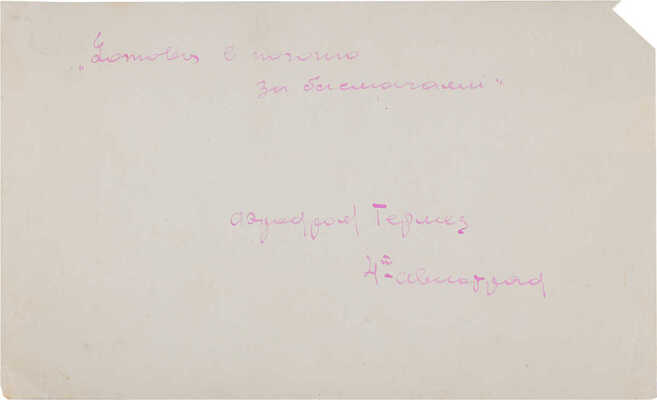 „Готовы в погоню
за басмачами"
аэродром Термез
4й авиаотряд